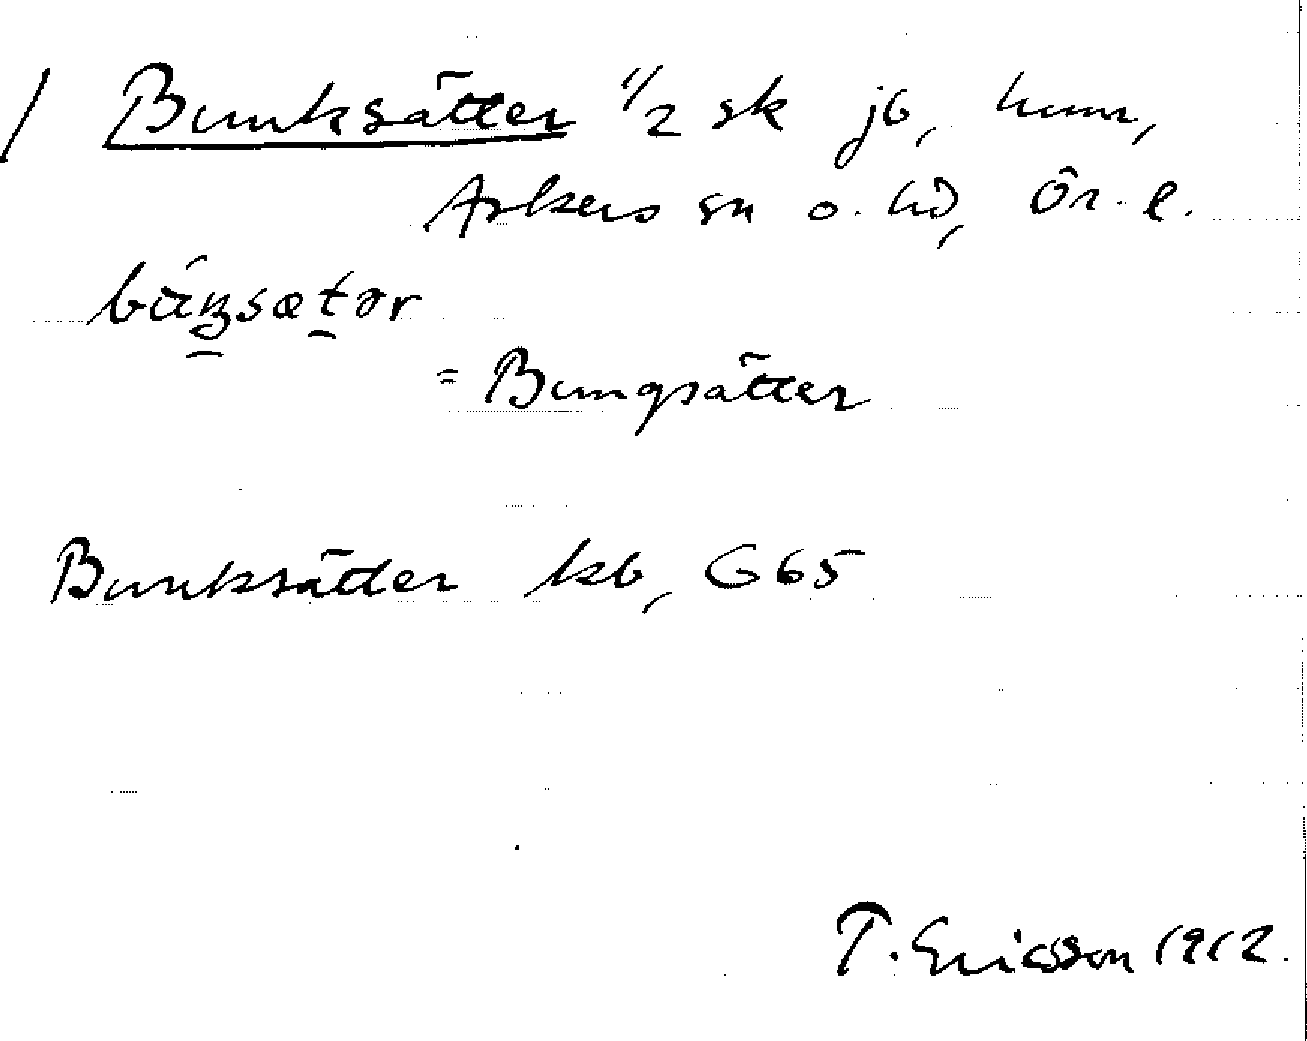 / Bunksätter 1/2 sk jb, hmn,
Askers sn o. hd, Ör. l.
búŋsætər
= Bungsätter
Bunksätter kb, G65
T. Ericsson 1912.